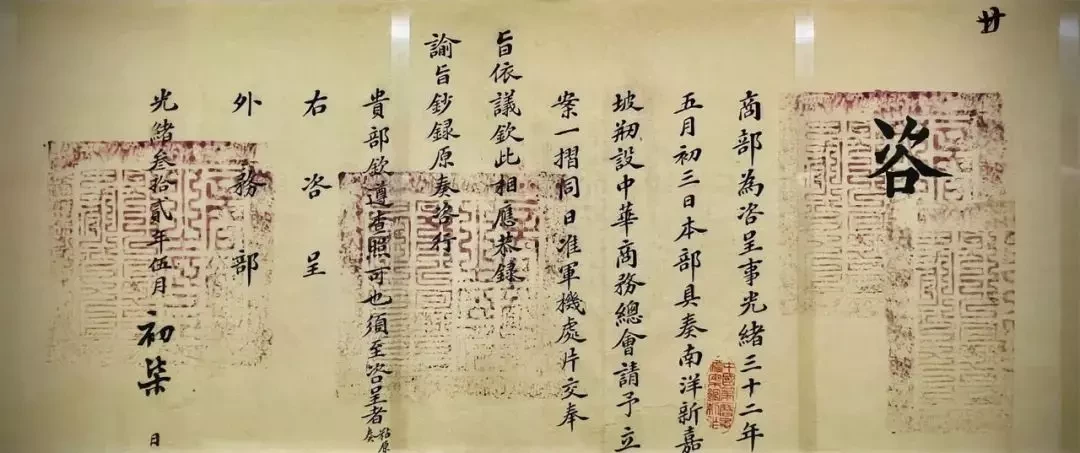 廿
咨
商部為咨呈事光緒三十二年
五月初三日本部具奏南洋新嘉
坡剏設中華商務總會請予立
案一摺同日准軍機處片交奉
旨依議欽此相應恭錄
諭旨鈔錄原奏咨行
貴部欽遵查照可也須至咨呈者
粘原
奏
右咨呈
外務部
光緒叁拾貳年伍月初柒日